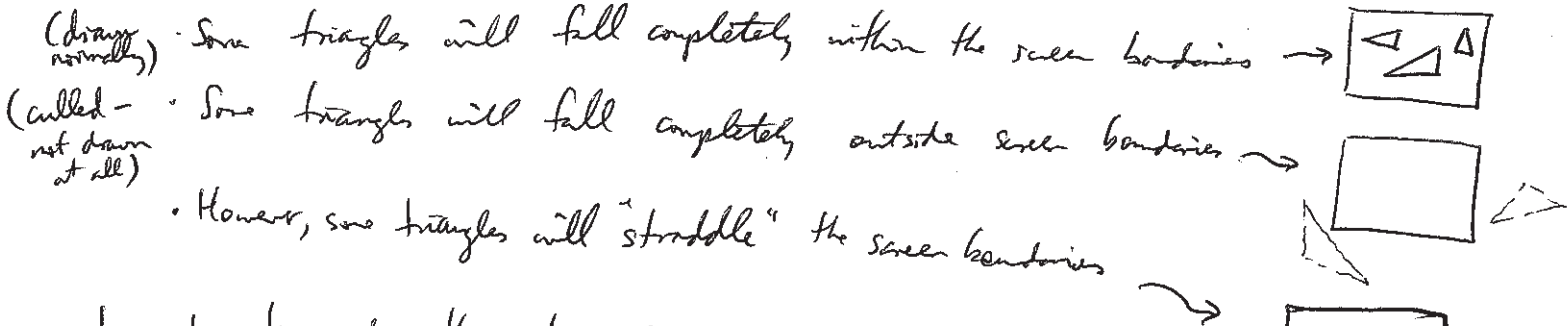 (drawn normally) · Some triangles will fall completely within the screen boundaries →
(culled - not drawn at all) · Some triangles will fall completely outside screen boundaries →
· However, some triangles will "straddle" the screen boundaries →